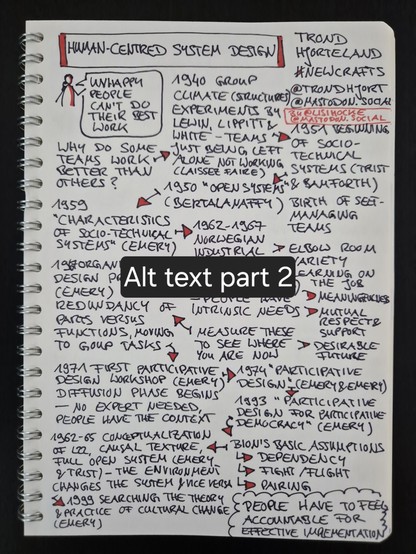 HUMAN-CENTRED SYSTEM DESIGN
TROND
HJORTELAND
#NEWCRAFTS
@TRONDHJORT
@MASTODON.SOCIAL
BY @LISIHOCKE
@MASTODON.SOCIAL
UNHAPPY
PEOPLE
CAN'T DO
THEIR BEST
WORK
WHY DO SOME
TEAMS WORK
BETTER THAN
OTHERS?
1940 GROUP
CLIMATE (STRUCTURE)
EXPERIMENTS BY
LEWIN, LIPPITT &
WHITE - TEAMS
JUST BEING LEFT
ALONE NOT WORKING
(LAISSEZ FAIRE)
1951 BEGINNING
OF SOCIO-
TECHNICAL
SYSTEMS (TRIST
& BAMFORTH)
BIRTH OF SELF-
MANAGING
TEAMS
1950 "OPEN SYSTEMS"
(BERTALANFFY)
1959
"CHARACTERISTICS
OF SOCIO-TECHNICAL
SYSTEMS" (EMERY)
1962-1967
NORWEGIAN
INDUSTRIAL
ELBOW ROOM
VARIETY
LEARNING ON
THE JOB
MEANINGFULNESS
MUTUAL
RESPECT &
SUPPORT
DESIRABLE
FUTURE
DESIGN
(EMERY)
REDUNDANCY OF
PARTS VERSUS
FUNCTIONS, MOVING
TO GOUP TASKS
Alt text part 2
- PEOPLE HAVE
INTRINSIC NEEDS
MEASURE THESE
TO SEE WHERE
YOU ARE NOW
1971 FIRST PARTICIPATIVE
DESIGN WORKSHOP (EMERY)
DIFFUSION PHASE BEGINS
- NO EXPERT NEEDED,
PEOPLE HAVE THE CONTEXT
1974 "PARTICIPATIVE
DESIGN" (EMERY & EMERY)
1993 "PARTICIPATIVE
DESIGN FOR PARTICIPATIVE
DEMOCRACY" (EMERY)
1962-65 CONCEPTUALIZATION
OF L22, CAUSAL TEXTURE,
FULL OPEN SYSTEM (EMERY
& TRIST) - THE ENVIRONMENT
CHANGES THE SYSTEM & VICE VERSA
BION'S BASIC ASSUMPTIONS
DEPENDENCY
FIGHT/FLIGHT
PAIRING
1999 SEARCHING THE THEORY
& PRACTICE OF CULTURAL CHANGE
(EMERY)
PEOPLE HAVE TO FEEL
ACCOUNTABLE FOR
EFFECTIVE IMPLEMENTATION